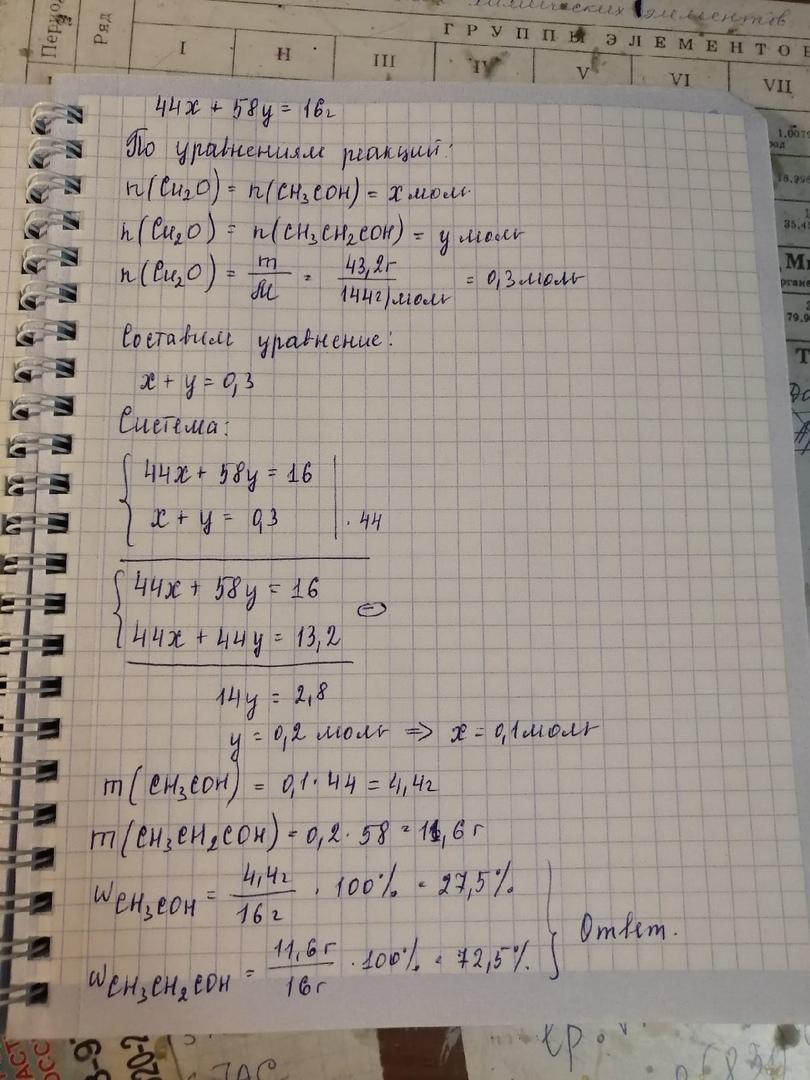 химических элементов
ГРУППЫ ЭЛЕМЕНТОВ
Ряд
I II III IV V VI VII
44x + 58y = 16г
По уравнениям реакций:
n(Cu₂O) = n(CH₃COH) = x моль
n(Cu₂O) = n(CH₃CH₂COH) = y моль
n(Cu₂O) = m/M = 43,2г/144г/моль = 0,3 моль
Составим уравнение:
x + y = 0,3
Система:
44x + 58y = 16
x + y = 0,3 | · 44
44x + 58y = 16
44x + 44y = 13,2
14y = 2,8
y = 0,2 моль ⇒ x = 0,1 моль
m(CH₃COH) = 0,1 · 44 = 4,4г
m(CH₃CH₂COH) = 0,2 · 58 = 11,6 г
wCH₃COH = 4,4г/16г · 100% = 27,5%
wCH₃CH₂COH = 11,6г/16г · 100% = 72,5%
Ответ.